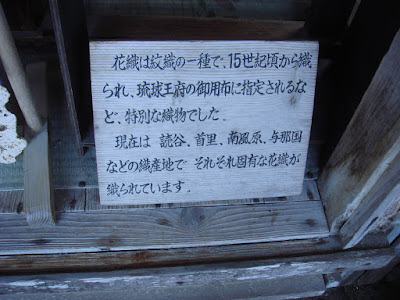 花織は紋織の一種で、15世紀頃から織
られ、琉球王府の御用布に指定されるな
ど、特別な織物でした.
現在は 読谷、首里、南風原、与那国
などの織産地で それぞれ固有な花織が
織られています.